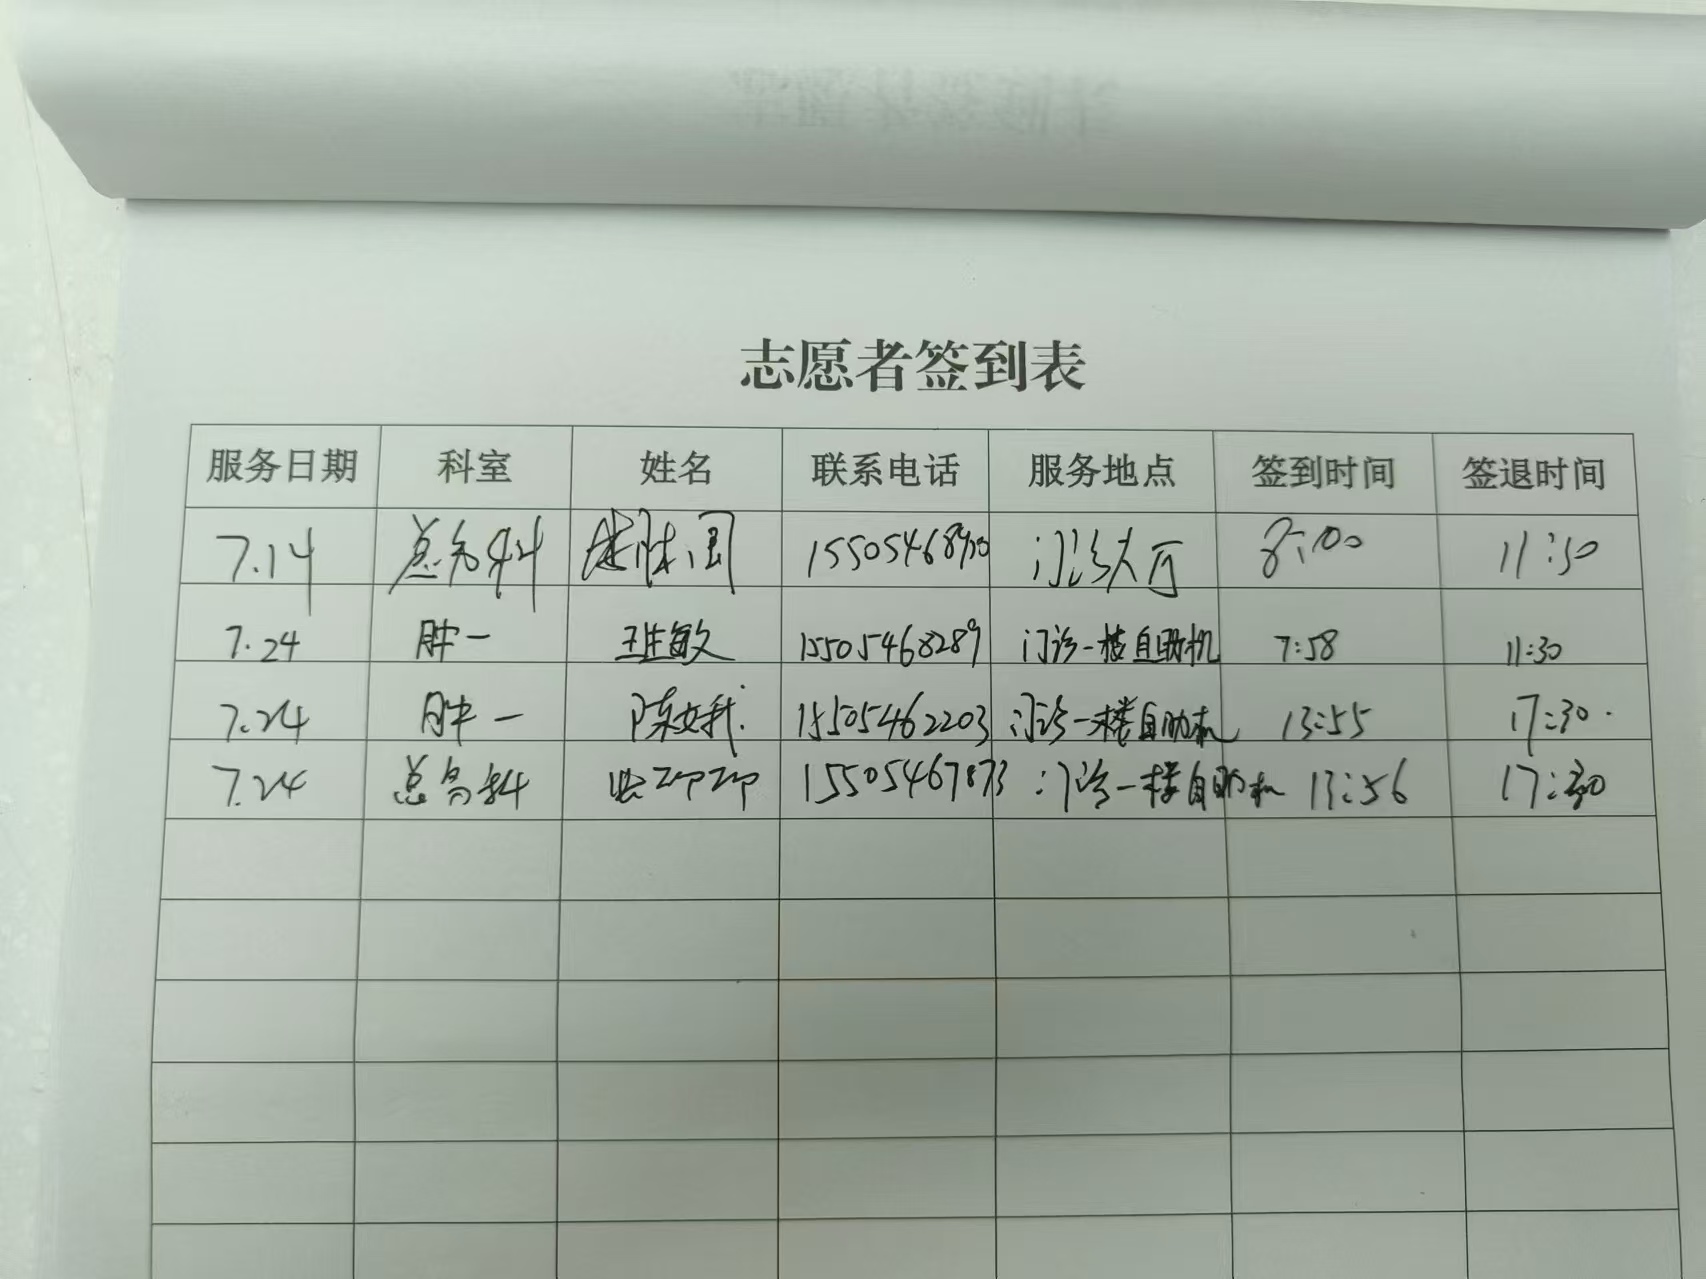 志愿者签到表
服务日期 科室 姓名 联系电话 服务地点 签到时间 签退时间
7.14 15505468920 门诊大厅 8:00 11:30
7.24 肿一 敏 15505468289 门诊一楼自助机 7:58 11:30
7.24 肿一 陈 15505462203 门诊一楼自助机 13:55 17:30
7.24 15505467873 门诊一楼自助机 13:56 17:30